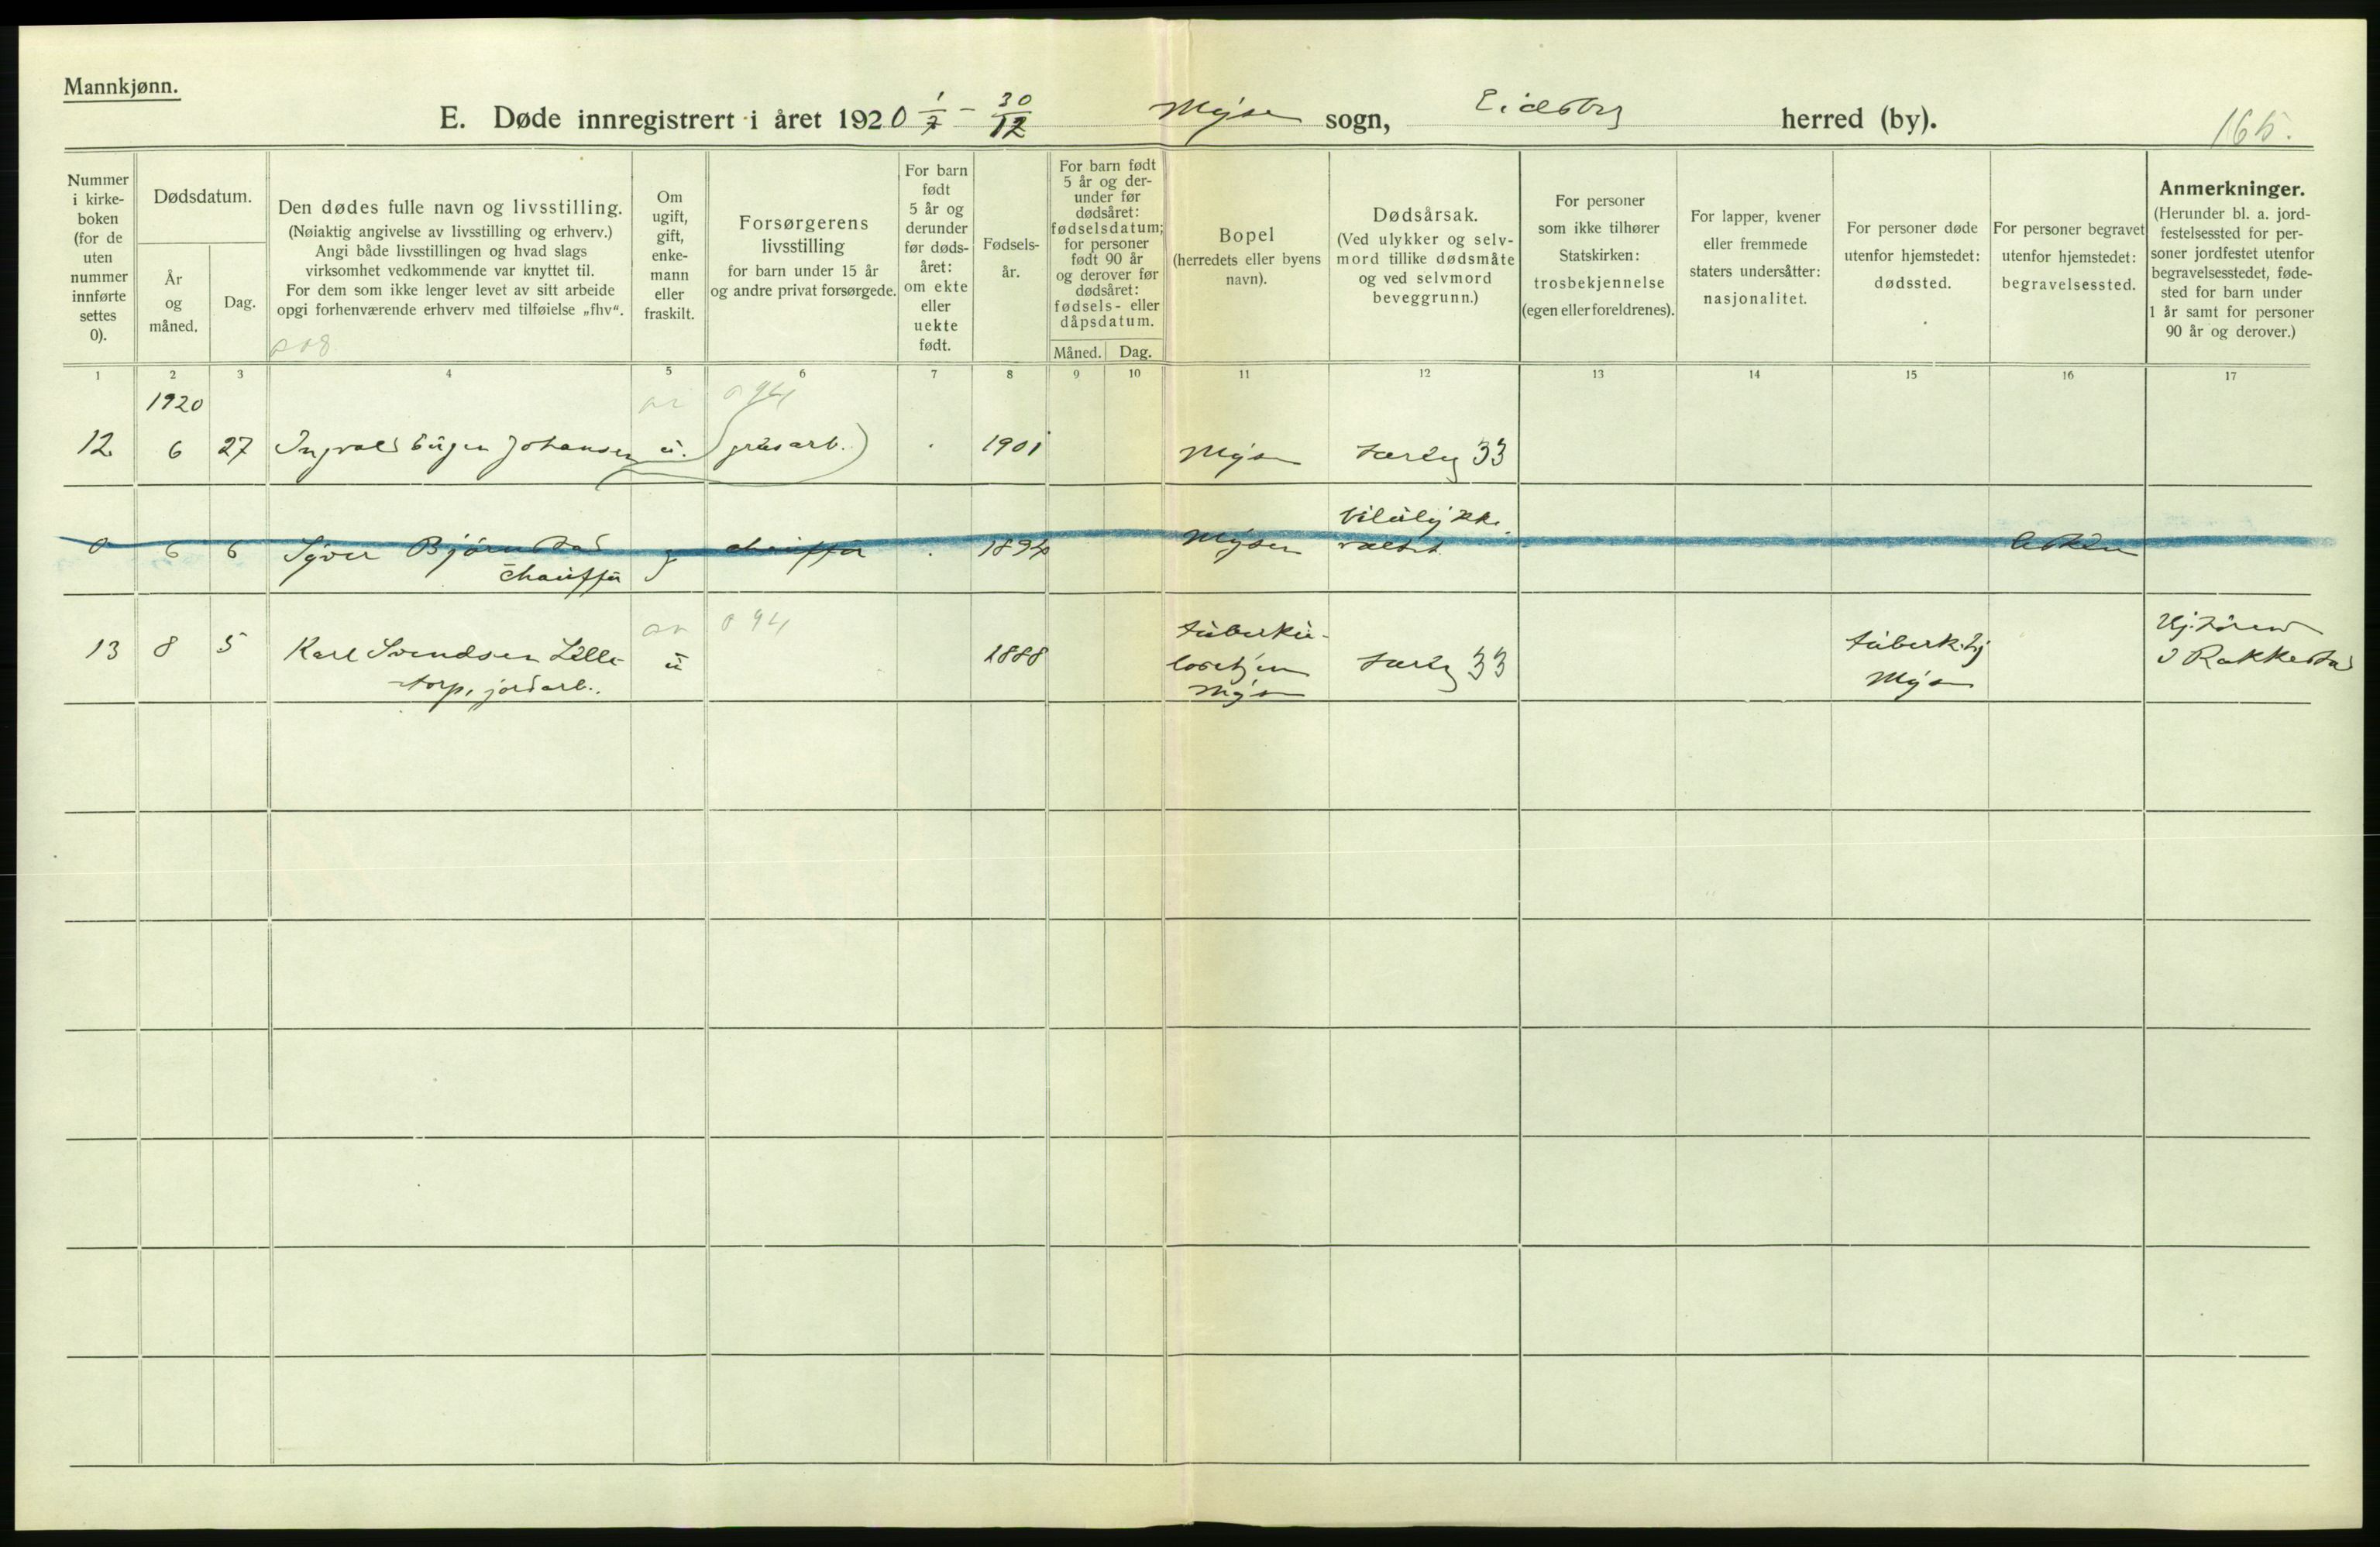 Mannkjønn.
E. Døde innregistrert i året 1920 1/7 - 30/12 Mysen sogn, Eidsberg herred (by). 165.
Nummer
i kirke-
boken
(for de
uten
nummer
innførte
settes
0).
Dødsdatum.
År
og
måned.
Dag.
Den dødes fulle navn og livsstilling.
(Nøiaktig angivelse av livsstilling og erhverv.)
Angi både livsstillingen og hvad slags
virksomhet vedkommende var knyttet til.
For dem som ikke lenger levet av sitt arbeide
opgi forhenværende erhverv med tilføielse „fhv“.
Om
ugift,
gift,
enke-
mann
eller
fraskilt.
Forsørgerens
livsstilling
for barn under 15 år
og andre privat forsørgede.
For barn
født
5 år og
derunder
før døds-
året:
om ekte
eller
uekte
født.
Fødsels-
år.
For barn født
5 år og der-
under før
dødsåret:
fødselsdatum;
for personer
født 90 år
og derover før
dødsåret:
fødsels- eller
dåpsdatum.
Måned. Dag.
Bopel
(herredets eller byens
navn).
Dødsårsak.
(Ved ulykker og selv-
mord tillike dødsmåte
og ved selvmord
beveggrunn.)
For personer
som ikke tilhører
Statskirken:
trosbekjennelse
(egen eller foreldrenes).
For lapper, kvener
eller fremmede
staters undersåtter:
nasjonalitet.
For personer døde
utenfor hjemstedet:
dødssted.
For personer begravet
utenfor hjemstedet:
begravelsessted.
Anmerkninger.
(Herunder bl. a. jord-
festelsessted for per-
soner jordfestet utenfor
begravelsesstedet, føde-
sted for barn under
1 år samt for personer
90 år og derover.)
1 2 3 4 5 6 7 8 9 10 11 12 13 14 15 16 17
1920
12. 6 27 Ingvald Eugen Johansen u. (grusarb.) 1901 Mysen 33
0 6 6 Syver Bjørnstad
chauffør
g chauffør 1894 Mysen
13 8 5 Karl Svendsen Lille-
torp, jordarb.
u 094 1888
tuberku-
losehjem
Mysen
33
tuberk.hj
Mysen
i Rakkestad